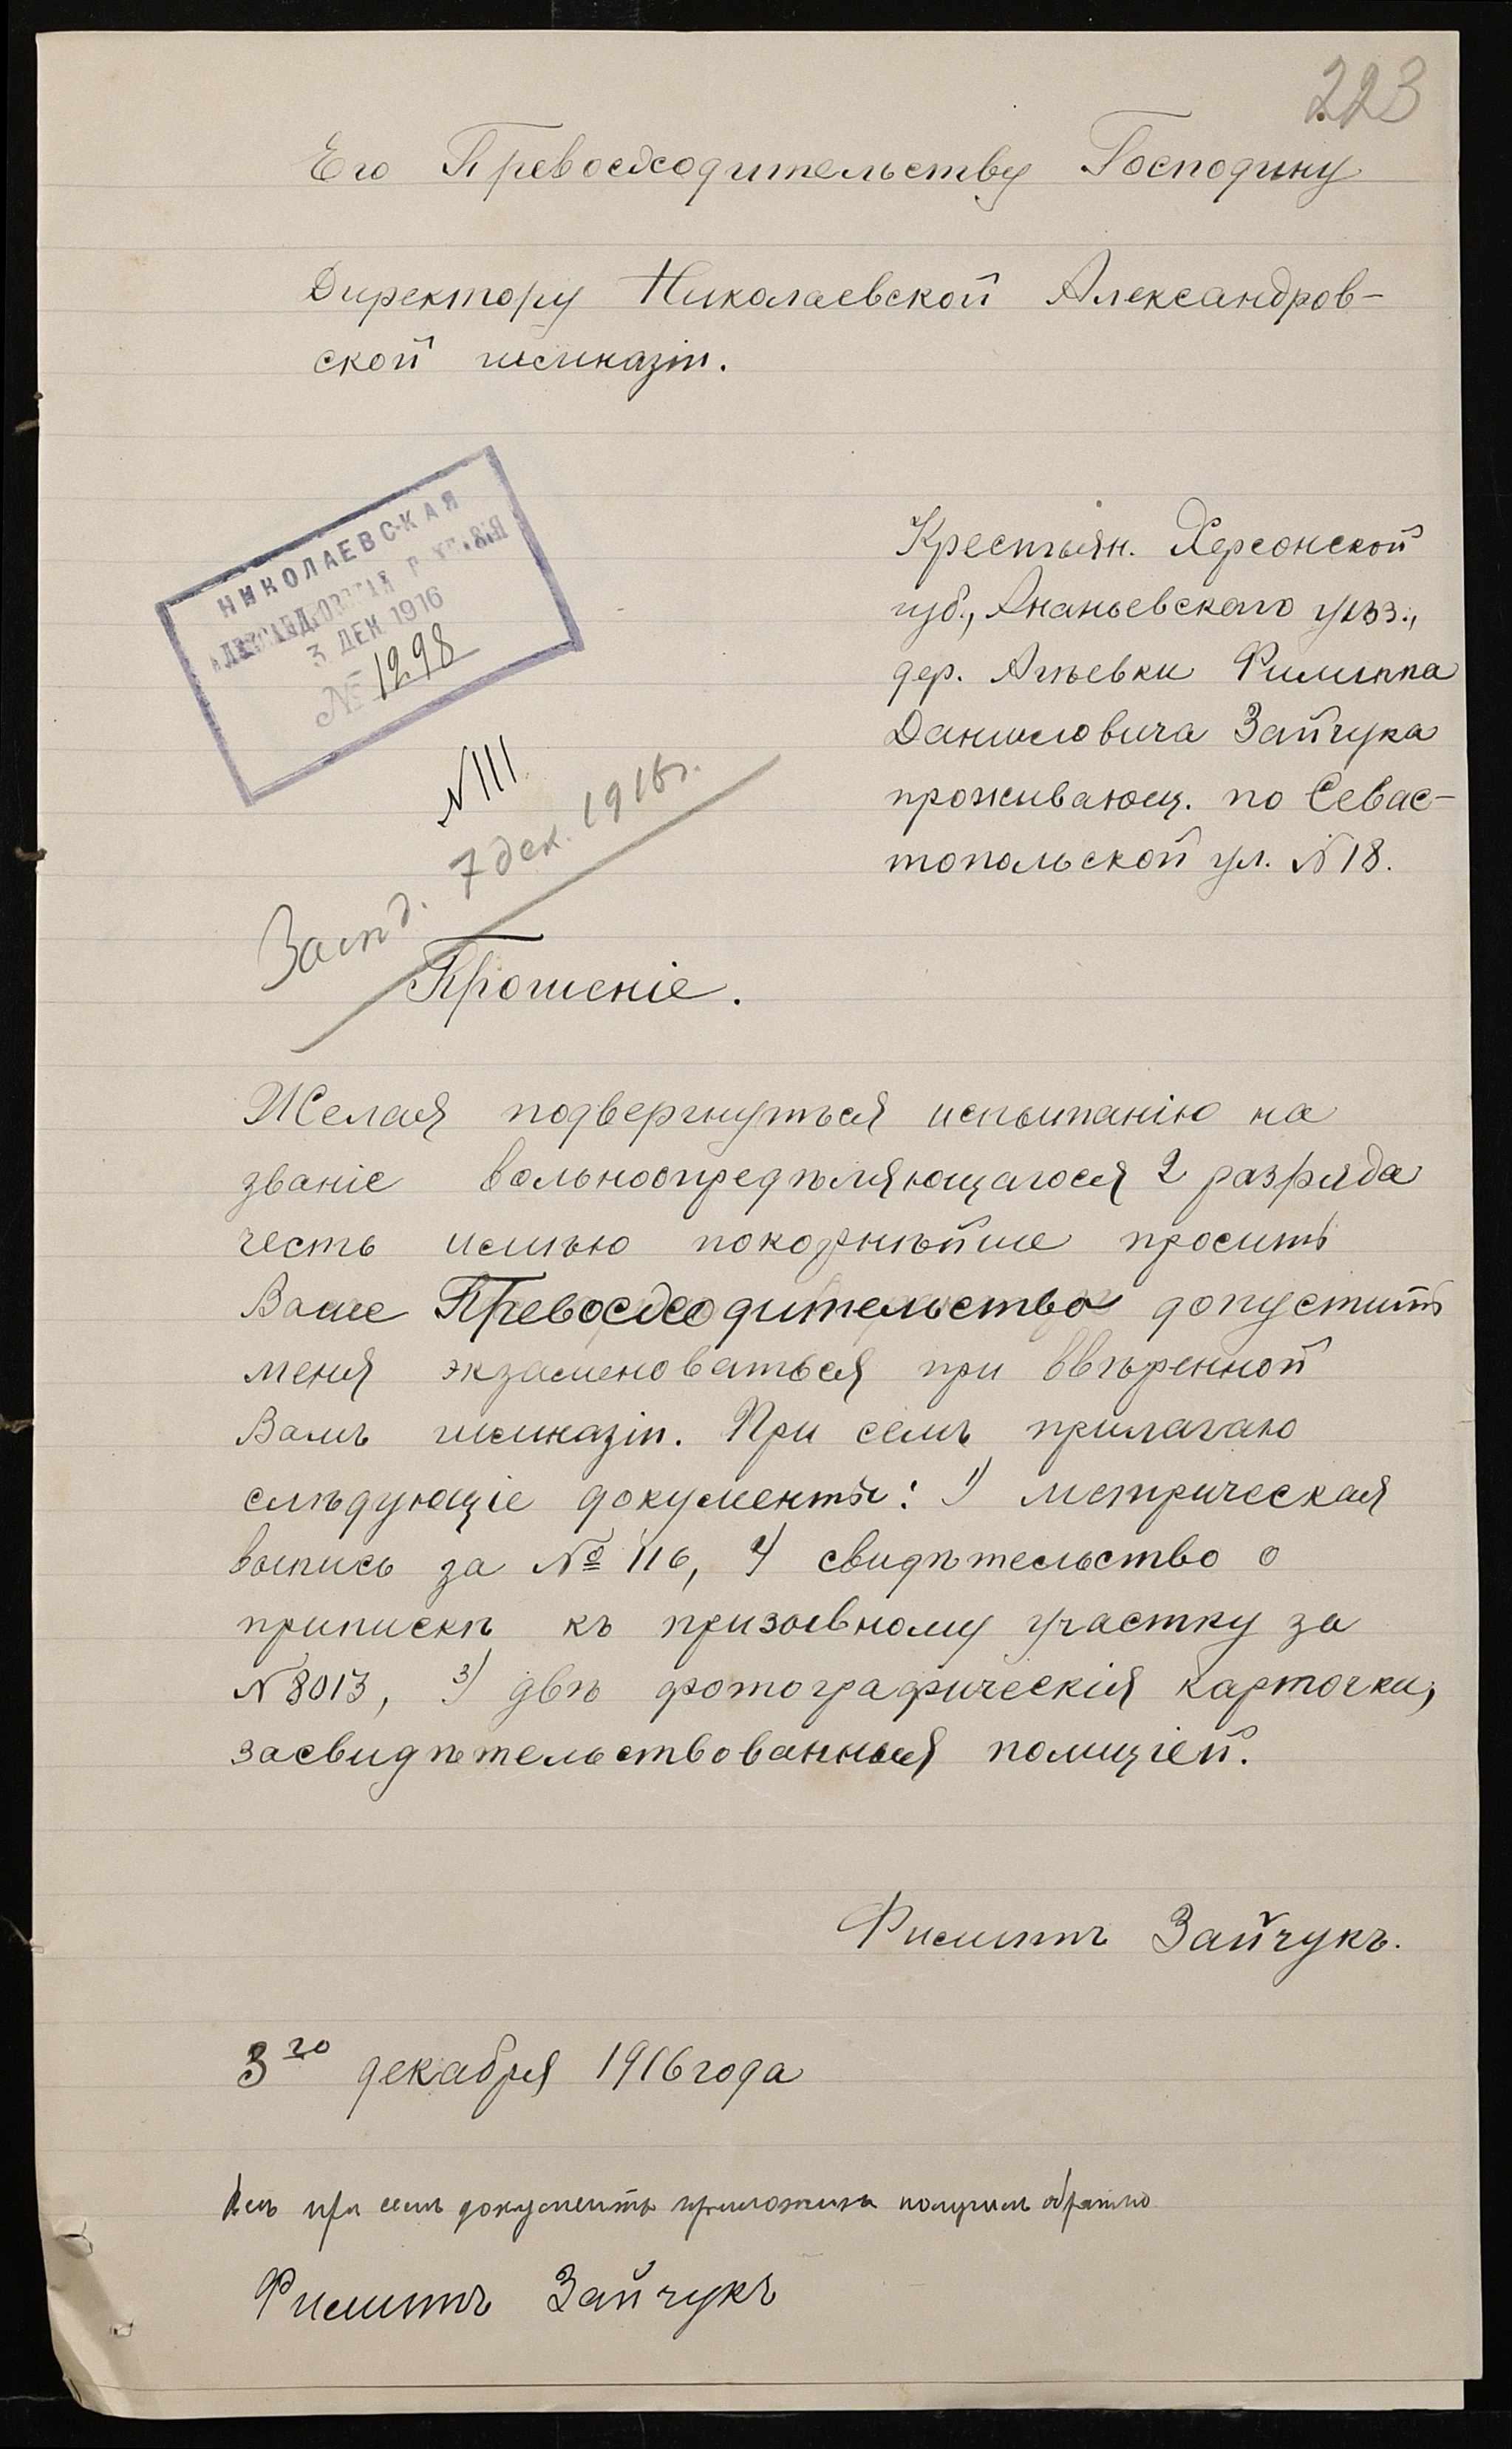 223
Его Превосходительству Господину
Директору Николаевской Александров-
ской гимназіи.
НИКОЛАЕВСКАЯ
АЛЕКСАНДРОВСКАЯ
3 ДЕК 1916
№ 1298
Крестьян. Херсонской
губ., Ананьевскаго уѣз.,
дер. Филиппа
Даниловича Зайчука
проживающ. по Севас-
топольской ул. N 18.
N 111
7 дек. 1916 г.
Прошеніе.
Желая подвергнуться испытанію на
званіе вольноопредѣляющагося 2 разряда
честь имѣю покорнѣйше просить
Ваше Превосходительство допустить
меня экзаменоваться при ввѣренной
Вамъ гимназіи. При семъ прилагаю
слѣдующіе документы: 1) метрическая
выпись за № 116, 2) свидѣтельство о
припискѣ къ призывному участку за
N 8013, 3) двѣ фотографическія карточки,
засвидѣтельствованныя полиціей.
Филиппъ Зайчукъ.
3го декабря 1916 года
Всѣ при семъ документы приложены получилъ обратно
Филиппъ Зайчукъ